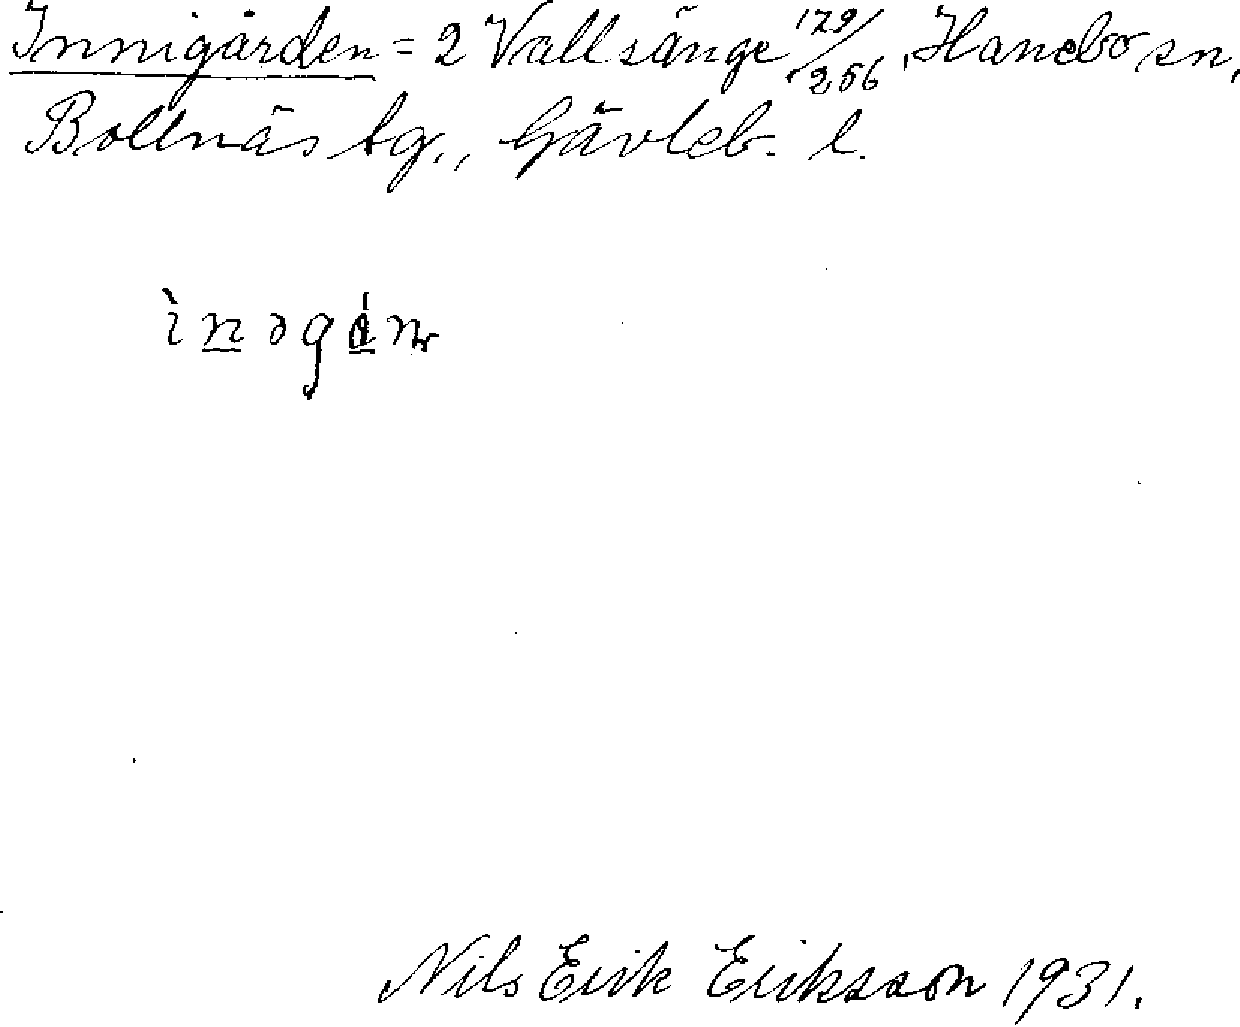 Innigården = 2 Vallsänge 179/256, Hanebo sn,
Bollnäs tg., Gävleb. l.
Nils Erik Eriksson 1931.